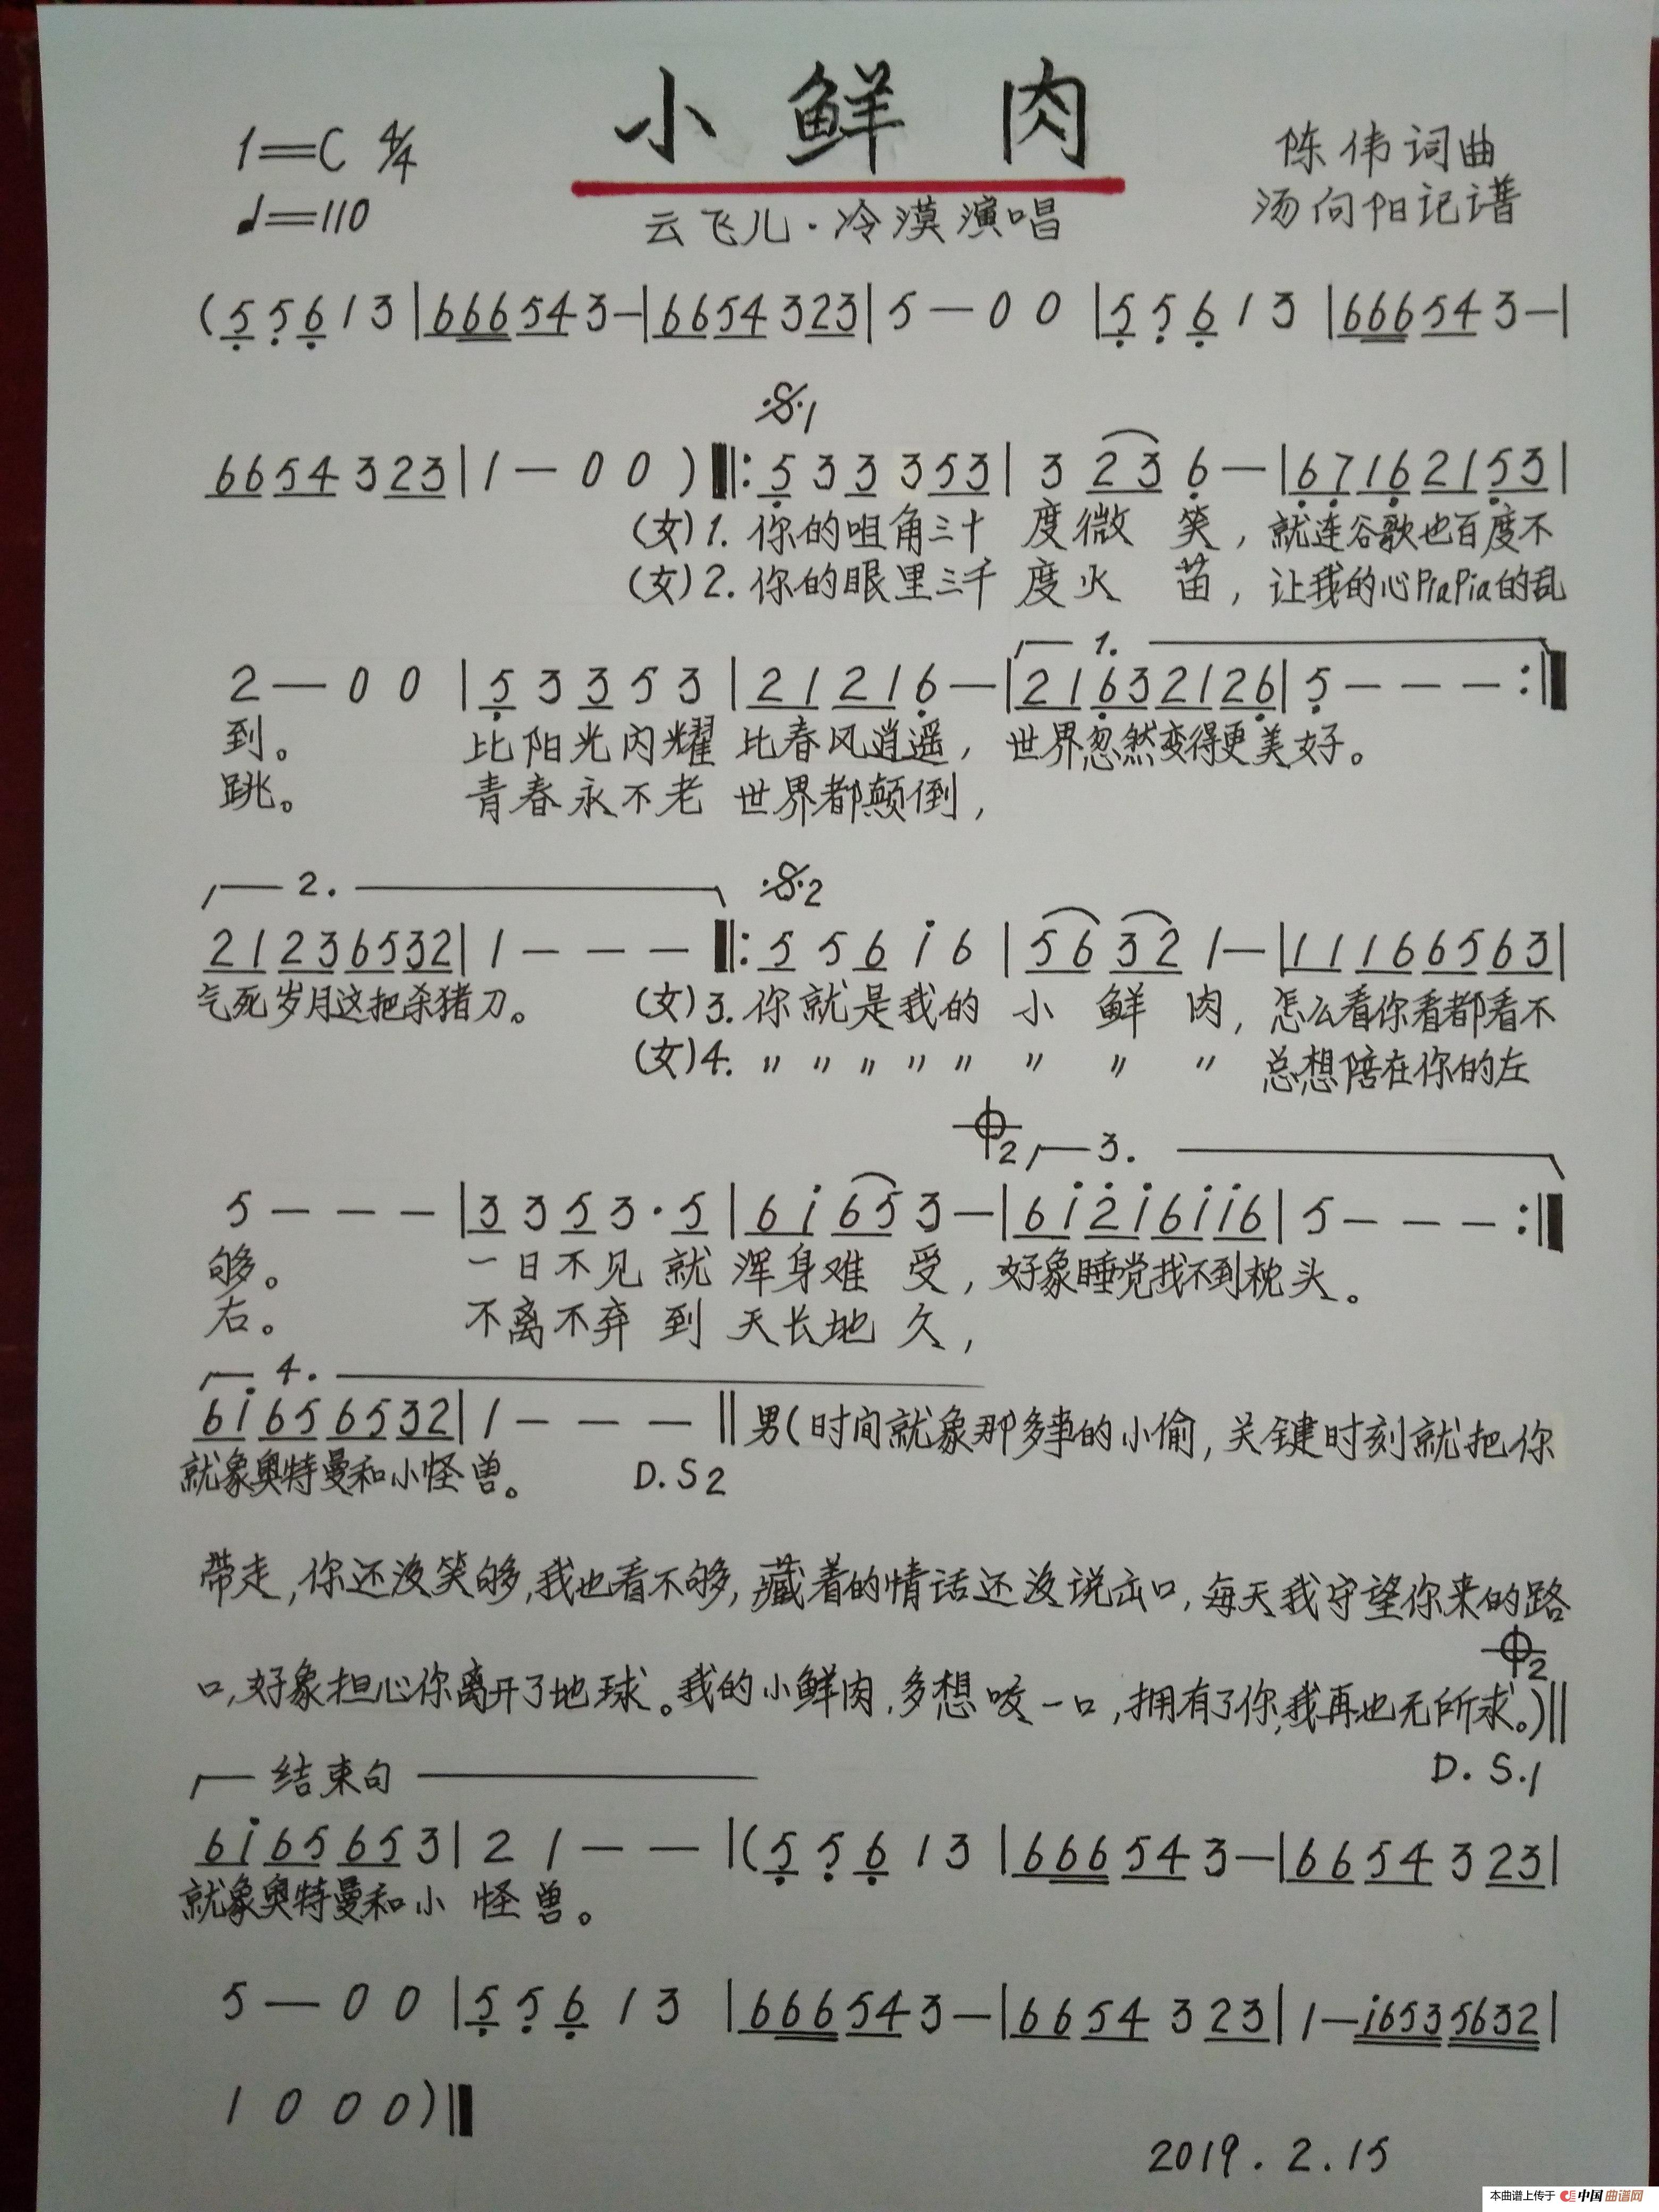 小鲜肉
1=C 4/4
♩=110
陈伟词曲
汤向阳记谱
云飞儿·冷漠演唱
(5 5 6 1 3 | 666 54 3— | 66 54 3 23 | 5 — 0 0 | 5 5 6 1 3 | 666 54 3— |
𝄋1
66 54 3 23 | 1 — 0 0 ) ‖: 5 3 3 3 53 | 3 23 6 — | 67 16 21 53 |
(女)1. 你的咀角三十 度微 笑, 就连谷歌也百度不
(女)2. 你的眼里三千 度火 苗, 让我的心PiaPia的乱
1.
2 — 0 0 | 5 3 3 5 3 | 21 21 6 — | 21 63 21 26 | 5 — — — :‖
到。 比阳光闪耀 比春风逍遥, 世界忽然变得更美好。
跳。 青春永不老 世界都颠倒,
2. 𝄋2
21 23 65 32 | 1 — — — ‖: 5 5 6 i 6 | 56 32 1 — | 11 16 65 63 |
气死岁月这把杀猪刀。 (女)3. 你就是我的 小 鲜 肉, 怎么看你看都看不
(女)4. 〃 〃 〃 〃 〃 〃 〃 〃 总想陪在你的左
𝄌2 3.
5 — — — | 3 3 5 3 · 5 | 6 i 65 3 — | 6i 2i 6i i6 | 5 — — — :‖
够。 一日不见就 浑身难 受, 好象睡觉找不到枕头。
右。 不离不弃到 天长地 久,
4.
6i 65 65 32 | 1 — — — ‖ 男(时间就象那多事的小偷, 关键时刻就把你
就象奥特曼和小怪兽。 D.S2
带走, 你还没笑够, 我也看不够, 藏着的情话还没说出口, 每天我守望你来的路
𝄌2
口, 好象担心你离开了地球。我的小鲜肉, 多想咬一口, 拥有了你, 我再也无所求。)‖
D. S.1
结束句
6i 65 65 3 | 2 1 — — | (5 5 6 1 3 | 666 54 3— | 66 54 3 23 |
就象奥特曼和小 怪兽。
5 — 0 0 | 5 5 6 1 3 | 666 54 3— | 66 54 3 23 | 1— i653 5632 |
1 0 0 0 )‖
2019.2.15
本曲谱上传于 中国曲谱网